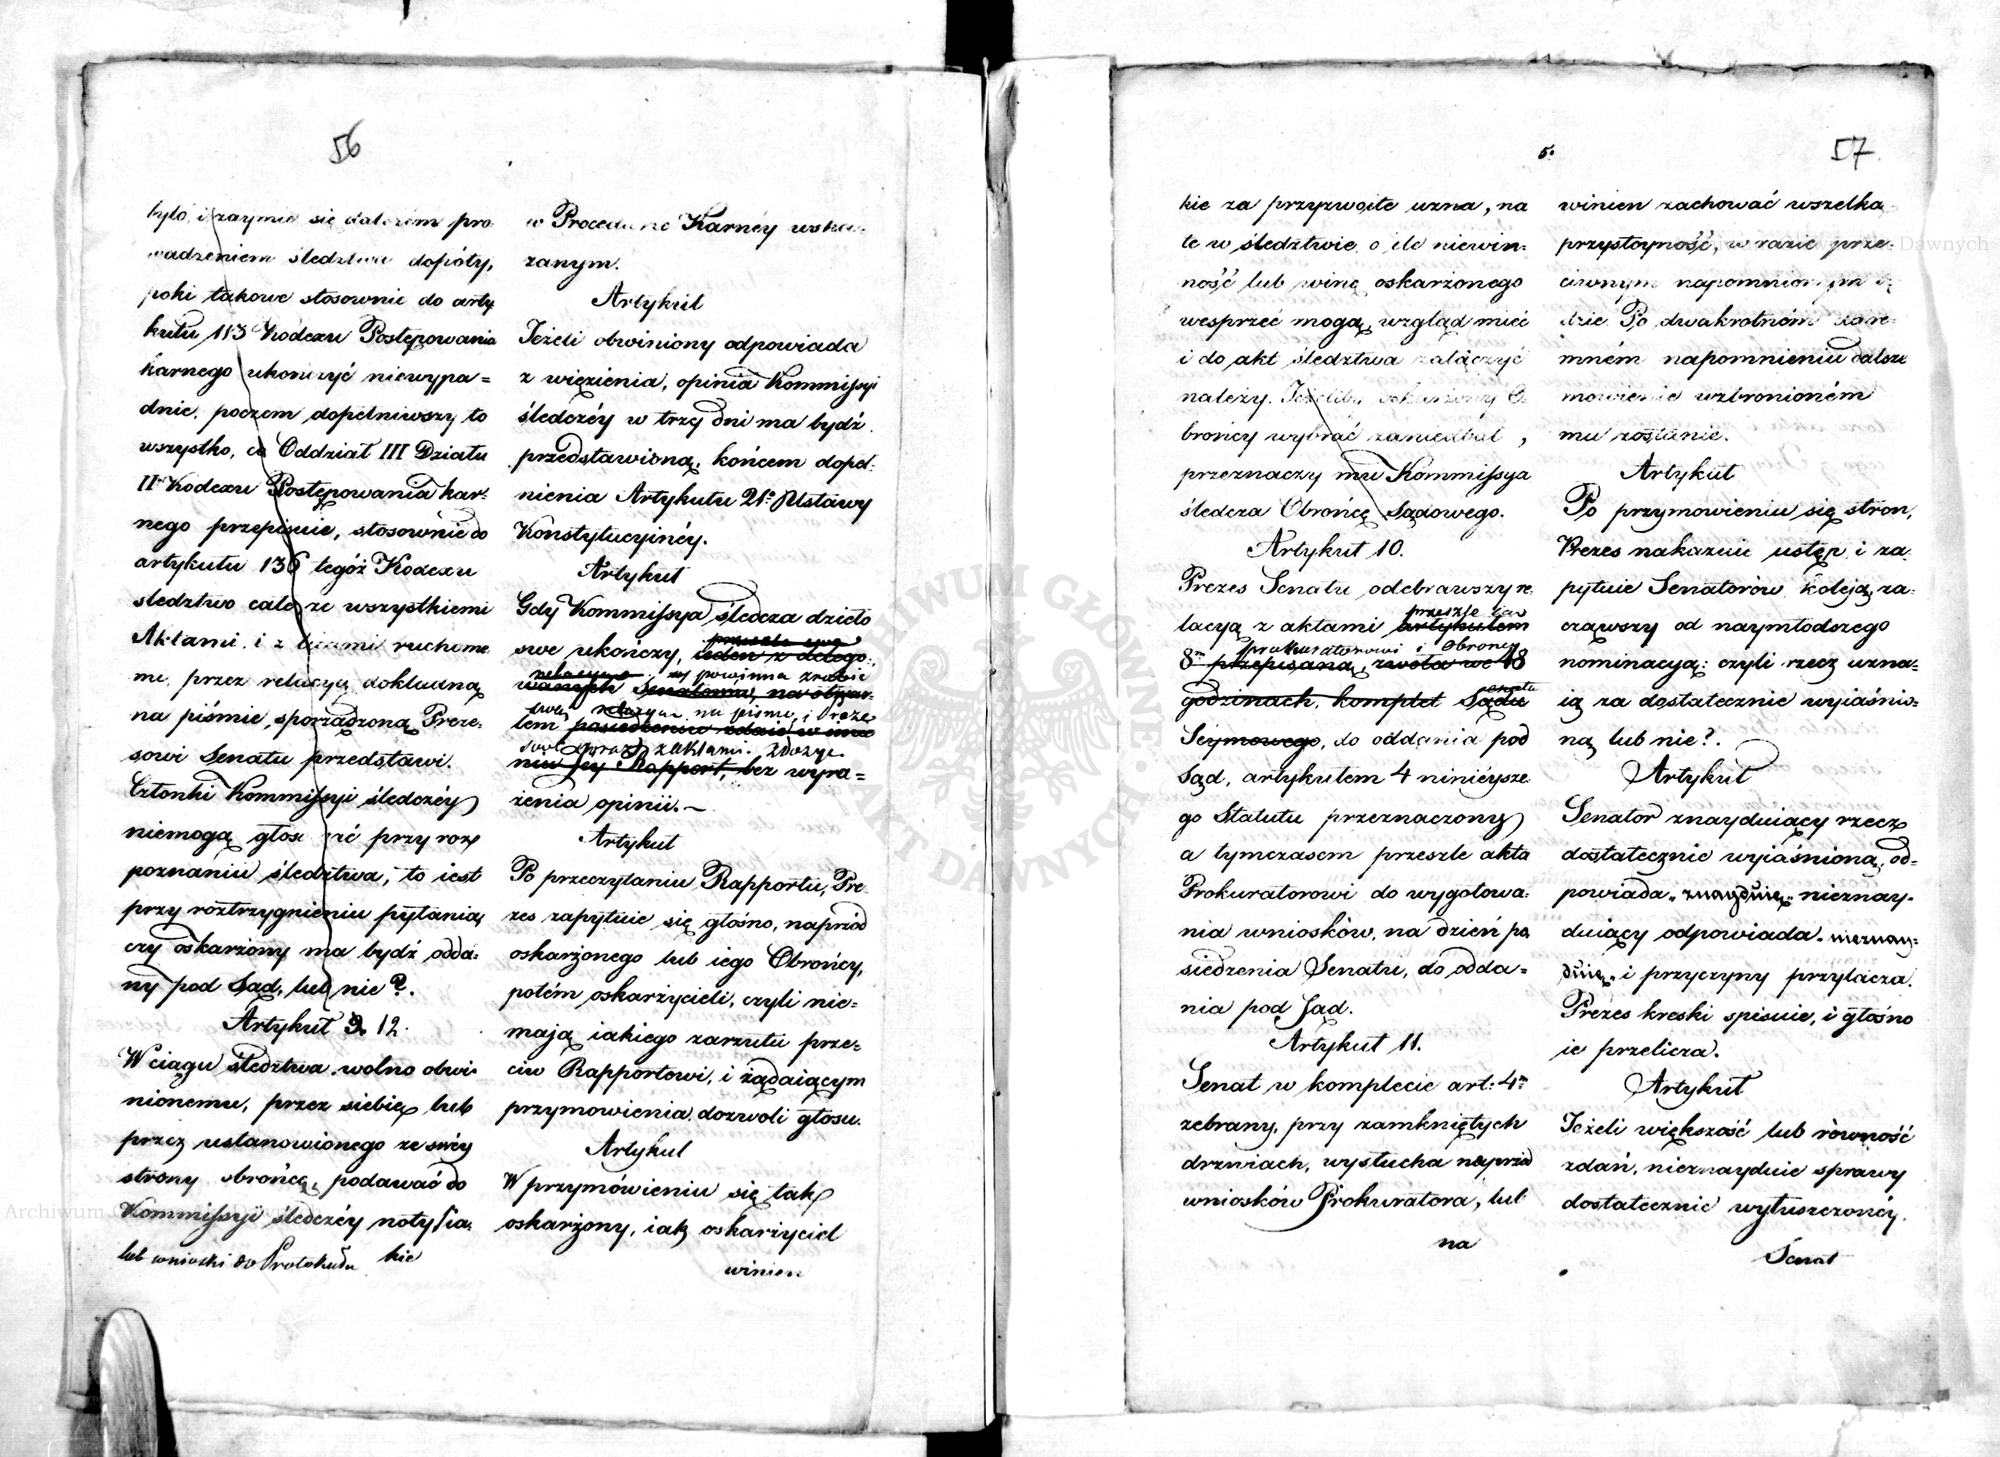 56
było, i zaymie się dalszém pro-
wadzeniem śledztwa dopóty,
poki takowe stosownie do arty
kułu 113 Kodexu Postępowania
karnego ukończyć niewypa=
dnie, poczem dopełniwszy to
wszystko, co Oddział III Działu
II° Kodexu Postępowania kar-
nego przepisuie, stosownie do
artykułu 136 tegóż Kodexu
śledztwo całe ze wszystkiemi
Aktami, i z ruchome
mi, przez relacyą dokładną
na piśmie sporządzoną Preze-
sowi Senatu przedstawi.
Członki Kommissyi śledczéy
niemogą głosować przy roz
poznaniu śledztwa, to iest
przy roztrzygnieniu pytania,
czy oskarżony ma bydź odda-
ny pod Sąd, lub nie?.
Artykuł 9. 12.
W ciągu śledztwa wolno obwi-
nionemu, przez siebie lub
przez ustanowionego ze swéy
strony obrońcę, podawać do
Kommissyi śledczéy noty ia-
lub wnioski do Protokułu kie
w Procedurze Karnéy wska-
zanym.
Artykuł
Ieżeli obwiniony odpowiada
z więzienia, opinia Kommissyi
śledczéy w trzy dni ma bydź
przedstawioną, końcem dopeł-
nienia Artykułu 21° Ustawy
Konstytucyinéy.
Artykuł
Gdy Kommissya śledcza dzieło
swe ukończy, ieden z delego-
relacyą, powinna zrobić
wanych Senatorów, na otwar-
swą relacyą na piśmie, i Preze
tem posiedzeniu zdaie w imie
sowi wraz z aktami złożyć
niu Jey Rapport, bez wyra=
żenia opinii.
Artykuł
Po przeczytaniu Rapportu, Pre-
zes zapytuie się głośno, naprzód
oskarżonego lub iego Obrońcy,
potém oskarżycieli, czyli nie-
maią iakiego zarzutu prze-
ciw Rapportowi, i żądaiącym
przymowienia dozwoli głosu.
Artykuł
W przymówieniu się tak
oskarżony, iak oskarżyciel
winien
5.
57
kie za przyzwoite uzna, na
te w śledztwie o ile niewin-
ność lub winę oskarżonego
wesprzeć mogą, wzgląd mieć
i do akt śledztwa załączyć
należy. Ieżeliby oskarżony O-
brońcy wybrać zaniedbał,
przeznaczy mu Kommissya
śledcza Obrońcę Sądowego.
Artykuł 10.
Prezes Senatu odebrawszy re
lacyą z aktami artykułem
prokuratorowi i Obrońcy
8m przepisaną, zwoła we 48
godzinach, komplet Sądu
Seymowego, do oddania pod
Sąd, artykułem 4 ninieysze
go Statutu przeznaczony
a tymczasem przeszle akta
Prokuratorowi do wygotowa-
nia wniosków, na dzień po
siedzenia Senatu, do odda=
nia pod Sąd.
Artykuł 11.
Senat w komplecie art: 4m
zebrany, przy zamkniętych
drzwiach, wysłucha naprzód
wniosków Prokuratora, lub
na
winien zachować wszelką
przystoyność, w razie prze-
ciwnym napomnionym bę-
dzie. Po dwakrotném dare-
mném napomnieniu dalsze
mowienie wzbronioném
mu zostanie.
Artykuł
Po przymowieniu się stron,
Prezes nakazuie ustęp i za-
pytuie Senatorów koleją, za-
cząwszy od naymłodszego
nominacyą: czyli rzecz uzna-
ią za dostatecznie wyiaśnio-
ną lub nie?.
Artykuł
Senator znayduiący rzecz
dostatecznie wyiaśnioną, od-
powiada „znayduię" nieznay-
duiący odpowiada „nieznay-
duię" i przyczyny przytacza.
Prezes kreski spisuie, i głośno
ie przelicza.
Artykuł
Ieżeli większość lub równość
zdań, nieznayduie sprawy
dostatecznie wyłuszczonéy,
Senat
ARCHIWUM GŁÓWNE
AKT DAWNYCH